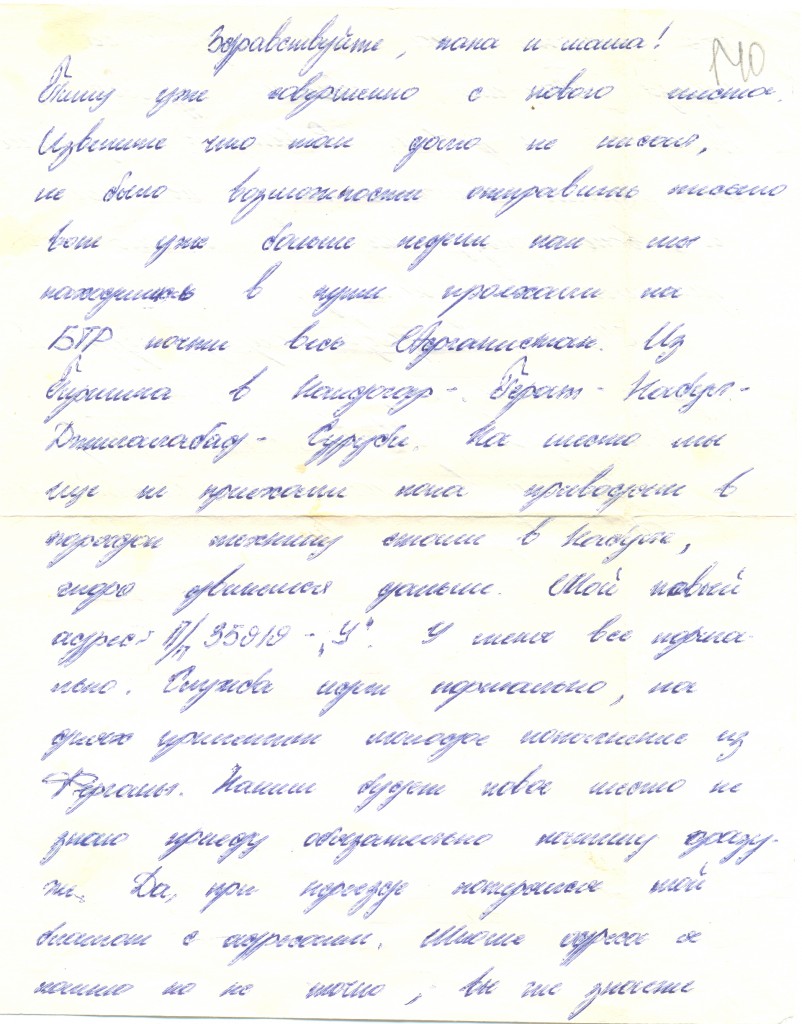 Здравствуйте, папа и мама!
140
Пишу уже совершенно с нового места.
Извените что так долго не писал,
не было возможности отправить письмо
вот уже больше недели как мы
находимся в пути проехали на
БТР почти весь Афганистан. Из
Гиришка в Кандагар - Герат - Кабул -
Джилалабад - Суруби. На место мы
еще не приехали пока приводим в
порядок технику стоим в Кабуле,
скоро двинемся дальше. Мой новый
адрес: П/П 35919 - "У". У меня все норма-
льно. Служба идет нормально, на
днях прилетит молодое пополнение из
Ферганы. Каким будет новое место не
знаю приеду обязательно напишу сразу-
же. Да, при переезде потерялся мой
блакнот с адресами. Многие адреса я
помню но не точно, вы же знаете